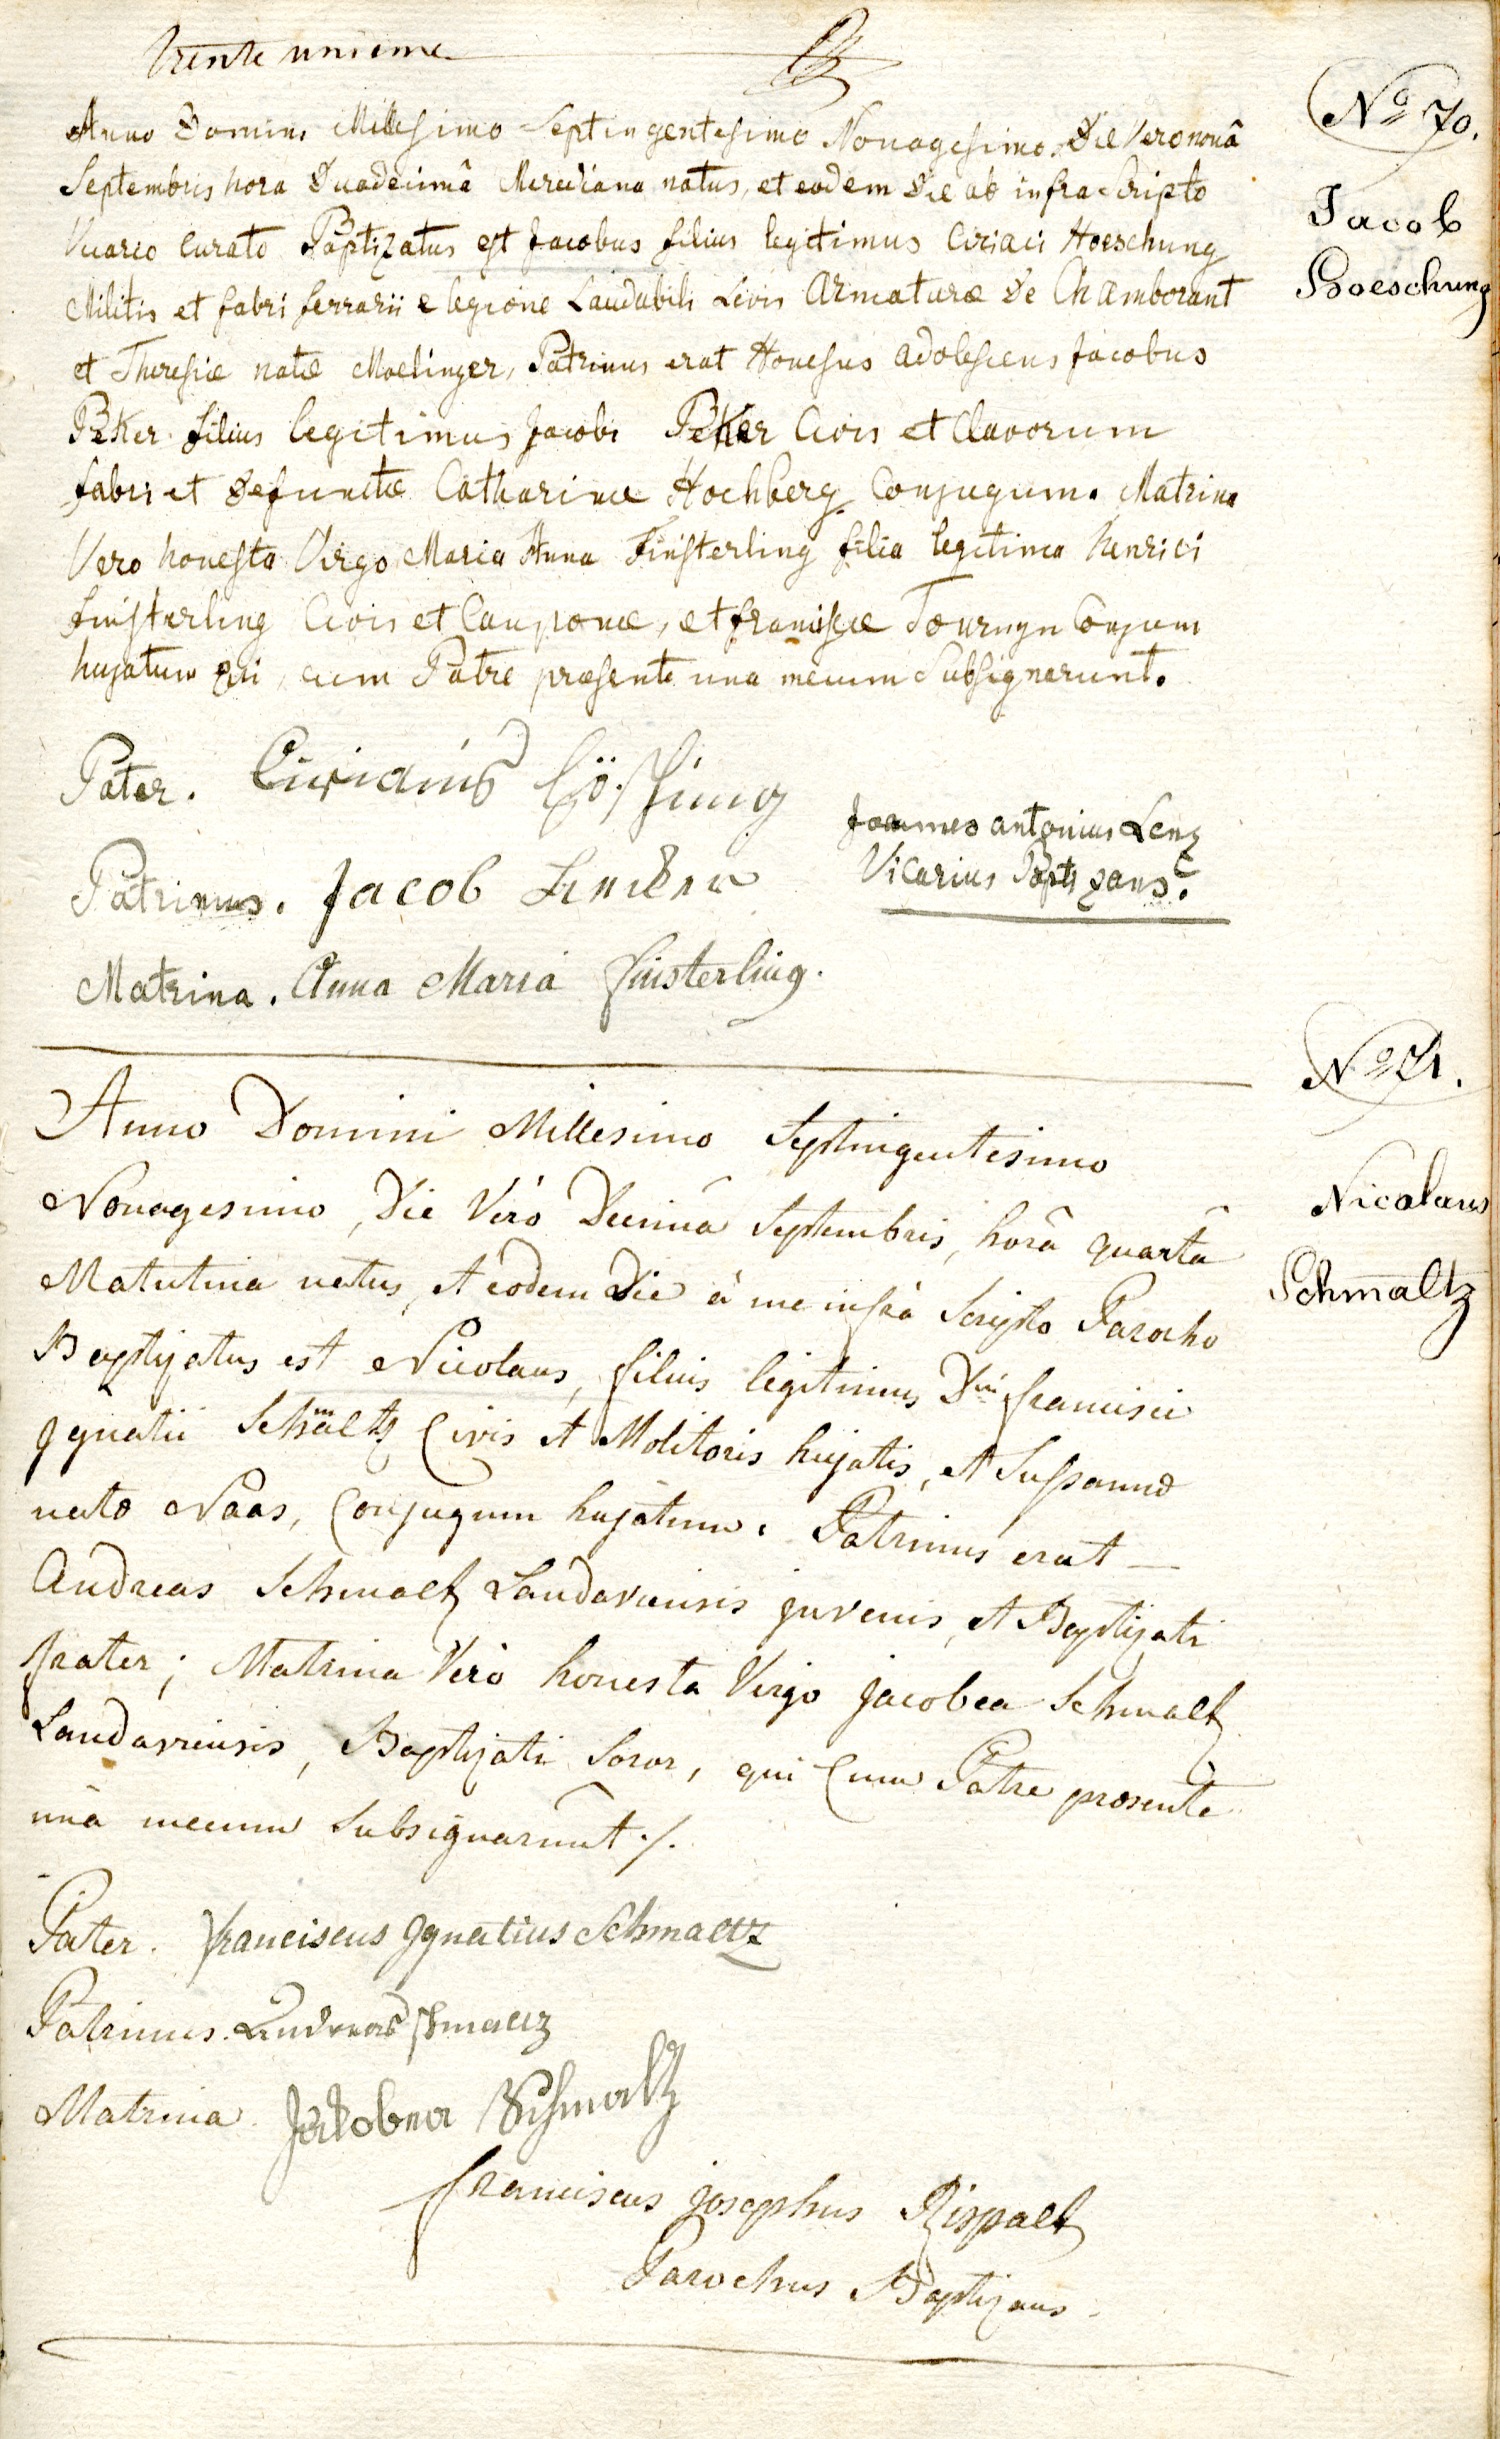 trente unieme
Nº 70.
Jacob
Hoeschung
Anno Domini Millesimo Septingentesimo Nonagesimo, Die Vero nonâ
Septembris hora Duadecimâ Meridiana natus, et eodem Die ab infra Scripto
Vicario Curato Baptizatus est Jacobus filius legitimus Ciriaci Hoeschung
Militis et fabri ferrarii e legione Laudabili Levis Armaturæ De Chamborant
et Theresiæ natæ Moelinger, Patrinus erat Honestus adolescens Jacobus
Beker filius legitimus Jacobi Beker Civis et Clavorum
fabri et Defunctæ Catharinæ Hochberg Conjugum. Matrina
Vero honesta Virgo Maria Anna Finsterling filia legitima henrici
finsterling Civis et Cauponæ, et franciscæ Tournyn Conjum
hujatum qui, cum Patre præsente una mecum Subsignarunt.
Pater. Ciriacus
Patrinus. Jacob
Matrina. Anna Maria finsterling.
Joannes antonius Lenz
Vicarius Baptizans.
Nº 71.
Nicolaus
Schmaltz
Anno Domini Millesimo Septingentesimo
Nonagesimo, Die Verò Decimâ Septembris, horâ quartâ
Matutina natus, et eodem Die à me infrà Scripto Parocho
Baptizatus est Nicolaus, filius legitimus Dni francisci
Ignatii Schmaltz Civis et Molitoris hujatis, et Sussannæ
natæ Naas, Conjugum hujatum. Patrinus erat —
Andreas Schmaltz Landaviensis juvenis, et Baptizati
frater; Matrina Verò honesta Virgo jacobea Schmaltz
Landaviensis, Baptizati Soror, qui Cum Patre præsente
unà mecum Subsignarunt ./.
Pater. franciscus Ignatius Schmaltz
Patrinus. Andreas schmaltz
Matrina. Jakobea Schmaltz
franciscus josephus Rispalt
Parochus Baptizans.